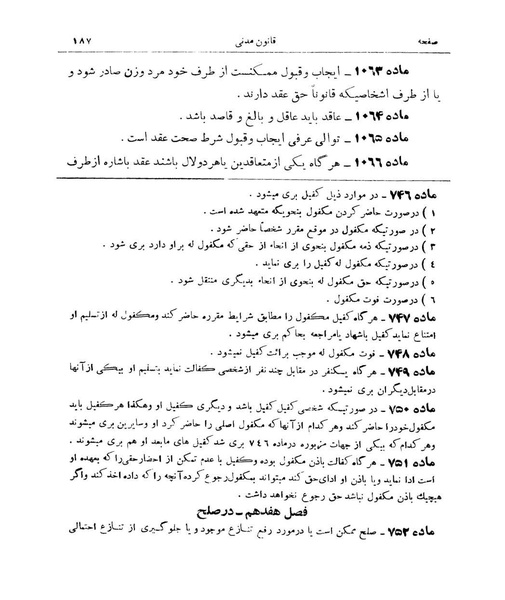 صفحه قانون مدنی ۱۸۷
ماده ۱۰۶۳ ـ ایجاب وقبول ممکنست از طرف خود مرد وزن صادر شود و
یا از طرف اشخاصیکه قانوناً حق عقد دارند .
ماده ۱۰۶۴ ـ عاقد باید عاقل و بالغ و قاصد باشد .
ماده ۱۰۶۵ ـ توالی عرفی ایجاب وقبول شرط صحت عقد است .
ماده ۱۰۶۶ ـ هرگاه یکی ازمتعاقدین یاهردولال باشند عقد باشاره ازطرف
ماده ۷۴۶ ـ در موارد ذیل کفیل بری میشود .
۱ ) درصورت حاضر کردن مکفول بنحویکه متعهد شده است .
۲ ) در صورتیکه مکفول در موقع مقرر شخصاً حاضر شود .
۳ ) درصورتیکه ذمه مکفول بنحوی از انحاء از حقی که مکفول له براو دارد بری شود .
٤ ) درصورتیکه مکفول له کفیل را بری نماید .
۵ ) درصورتیکه حق مکفول له بنحوی از انحاء بدیگری منتقل شود .
٦ ) درصورت فوت مکفول .
ماده ۷۴۷ ـ هرگاه کفیل مکفول را مطابق شرایط مقرره حاضر کند ومکفول له ازتسلیم او
امتناع نماید کفیل باشهاد یامراجعه بحاکم بری میشود .
ماده ۷۴۸ ـ فوت مکفول له موجب برائت کفیل نمیشود .
ماده ۷۴۹ ـ هرگاه یکنفر در مقابل چند نفر ازشخصی کفالت نماید بتسلیم او بیکی ازآنها
درمقابل دیگران بری نمیشود .
ماده ۷۵۰ ـ در صورتیکه شخصی کفیل کفیل باشد و دیگری کفیل او وهکذا هر کفیل باید
مکفول خودرا حاضر کند وهر کدام از آنها که مکفول اصلی را حاضر کرد او وسایرین بری میشوند
وهر کدام که بیکی از جهات مزبوره درماده ۷٤٦ بری شد کفیل های مابعد او هم بری میشوند .
ماده ۷۵۱ ـ هرگاه کفالت باذن مکفول بوده وکفیل با عدم تمکن از احضار حقی را که بعهده او
است ادا نماید ویا باذن او ادای حق کند میتواند بمکفول رجوع کرده آنچه را که داده اخذ کند واگر
هیچیک باذن مکفول نباشد حق رجوع نخواهد داشت .
فصل هفدهم ـ درصلح
ماده ۷۵۲ ـ صلح ممکن است یا درمورد رفع تنازع موجود و یا جلوگیری از تنازع احتمالی